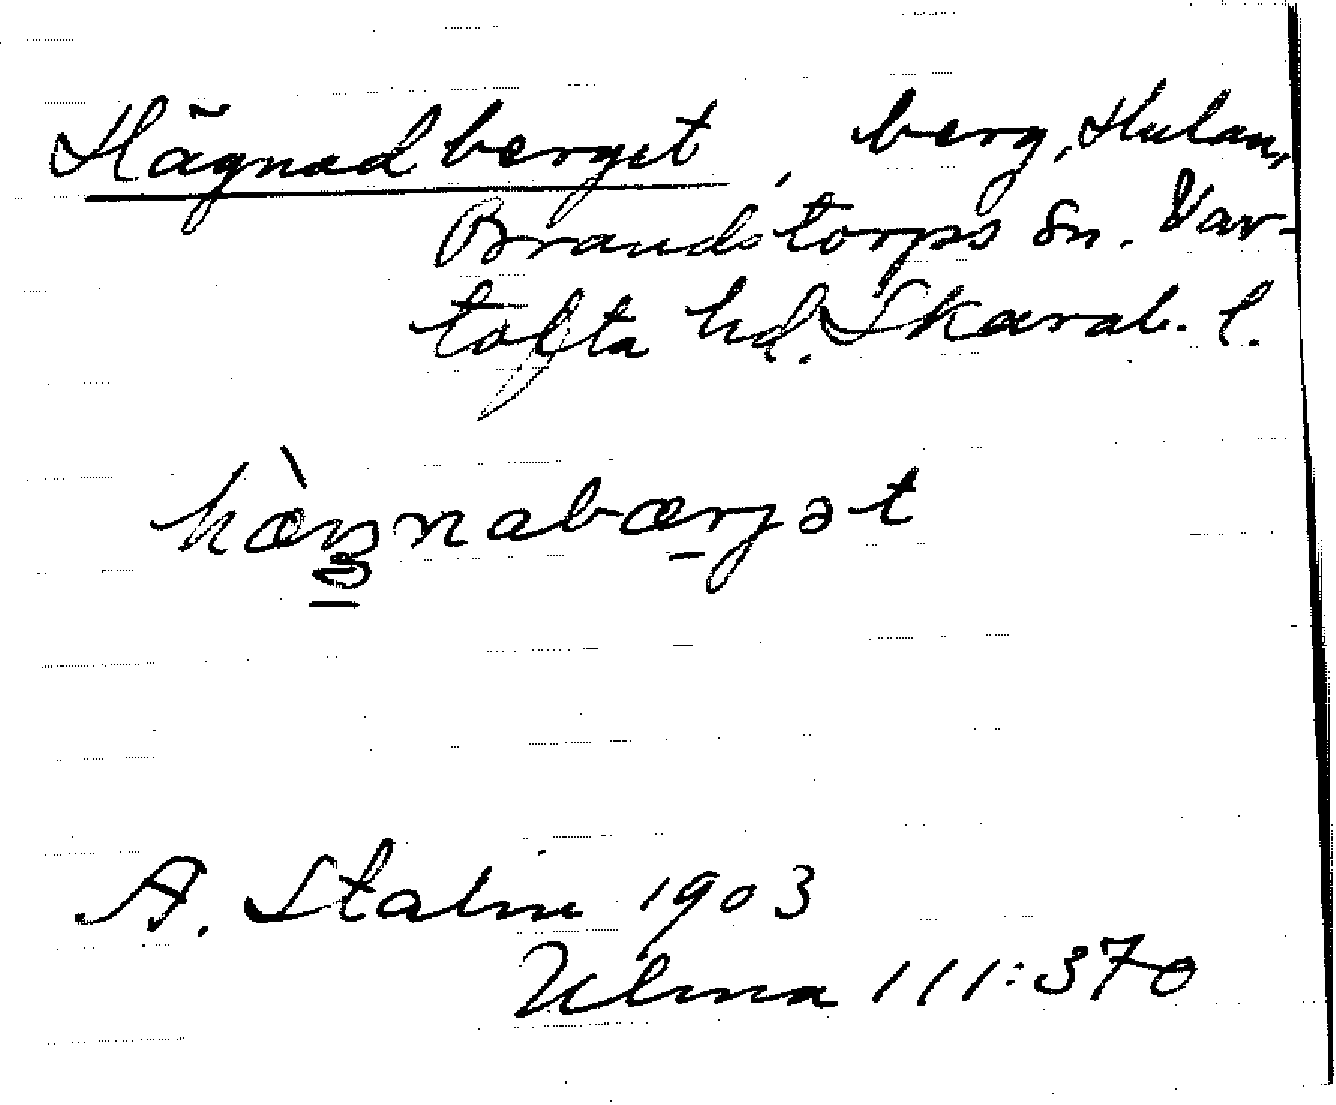 Hägnadberget, berg, Hulan,
Brandstorps sn. Var-
tofta hd. Skarab. l.
hæ̀ŋnabærjət
A. Stalin 1903
Ulma 111:370